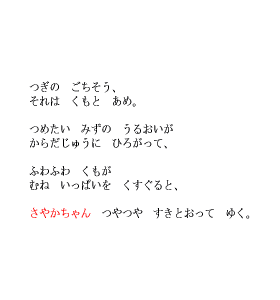 つぎの　ごちそう、
それは　くもと　あめ。
つめたい　みずの　うるおいが
からだじゅうに　ひろがって、
ふわふわ　くもが
むね　いっぱいを　くすぐると、
さやかちゃん　つやつや　すきとおって　ゆく。